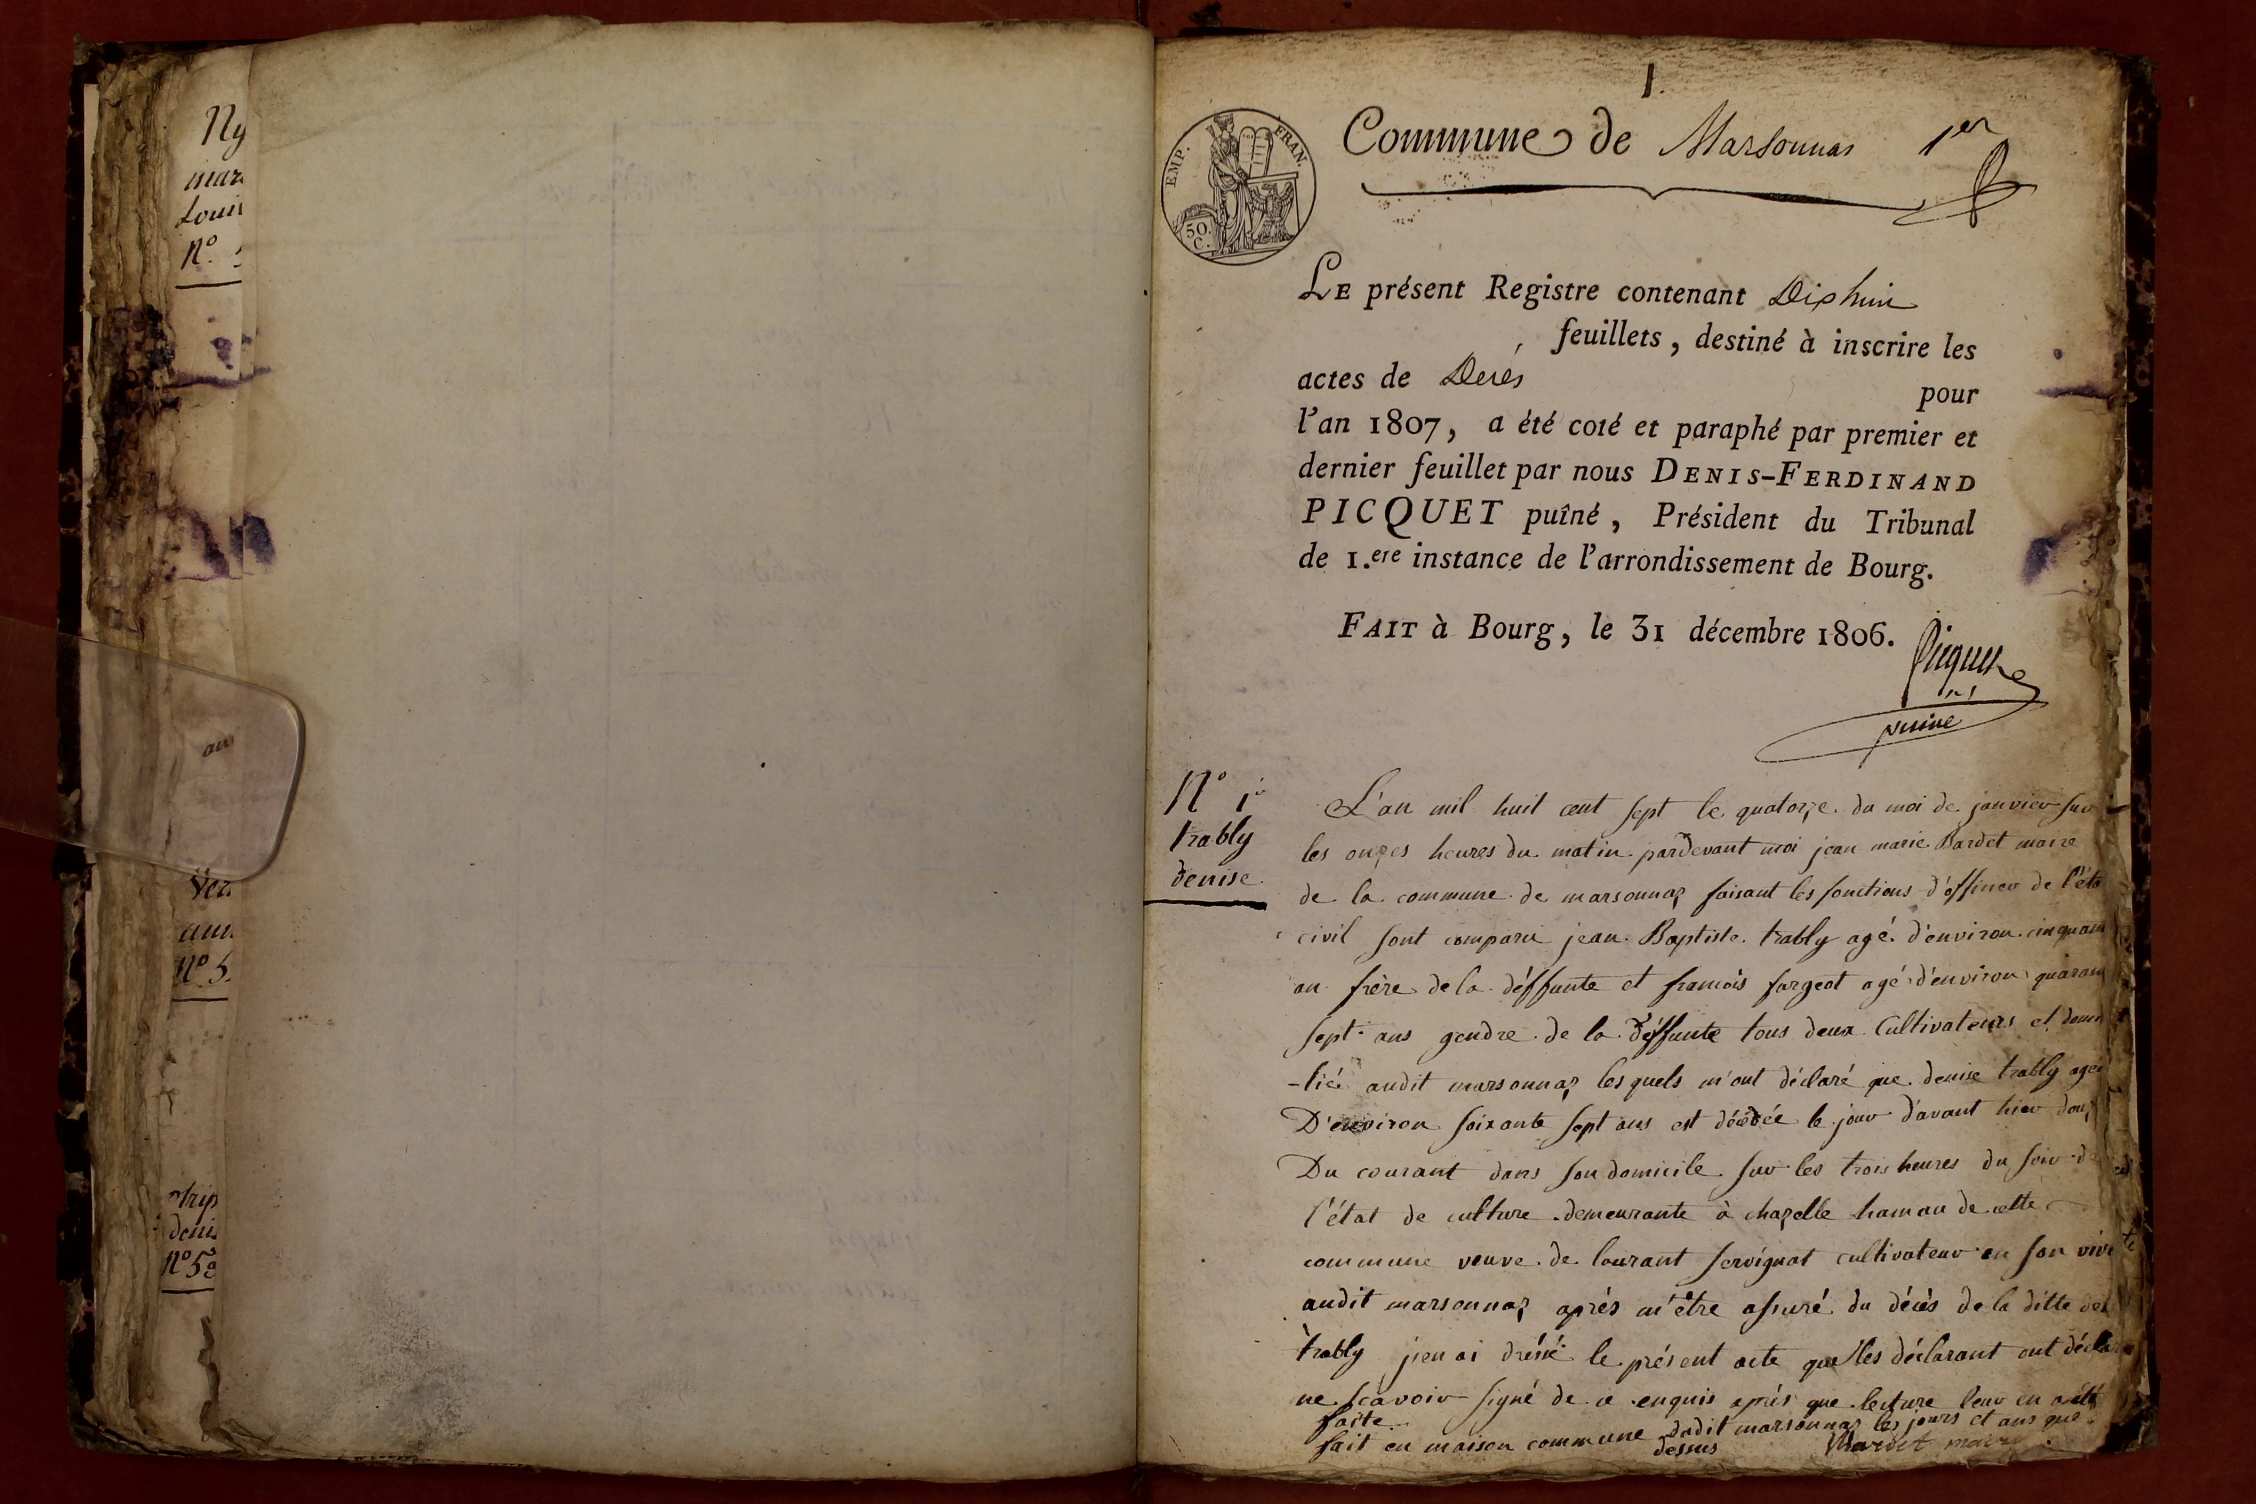 Ny
mar
Louis
N°
au
Ver
ann
N° 5
denis
N° 5
1.
EMP. FRAN.
50. C.
Commune de Marsonnas 1er
LE présent Registre contenant Dix huit
feuillets, destiné à inscrire les
actes de Décés pour
l'an 1807, a été coté et paraphé par premier et
dernier feuillet par nous DENIS-FERDINAND
PICQUET puîné, Président du Tribunal
de 1.ere instance de l'arrondissement de Bourg.
FAIT à Bourg, le 31 décembre 1806.
Picquet
puiné
N° 1er
trably
denise
L'an mil huit cent sept le quatorze du moi de janvier sur
les onzes heures du matin pardevant moi jean marie Bardet maire
de la commune de marsonnaz faisant les fonctions d'officier de l'éta
civil sont comparu jean Baptiste trably agé d'environ cinquan
an frère de la déffunte et francois fargeot agé d'environ quaran
sept ans gendre de la déffunte tous deux Cultivateurs et domi
-lié audit marsonnaz lesquels m'ont déclaré que denise trably agée
D'environ soixante sept ans est décédée le jour d'avant hier douz
Du courant dans son domicile sur les trois heures du soir de
l'état de culture demeurante à chazelle hamau de cette
commune veuve de laurant servignat cultivateur en son viv
audit marsonnaz aprés m'être assuré du décès de la ditte de
trably j'en ai dréssé le présent acte que les déclarant ont décla
ne scavoir signé de ce enquis aprés que lecture leur en a été
faite
fait en maison commune dudit marsonnaz les jours et ans que
dessus Bardet maire